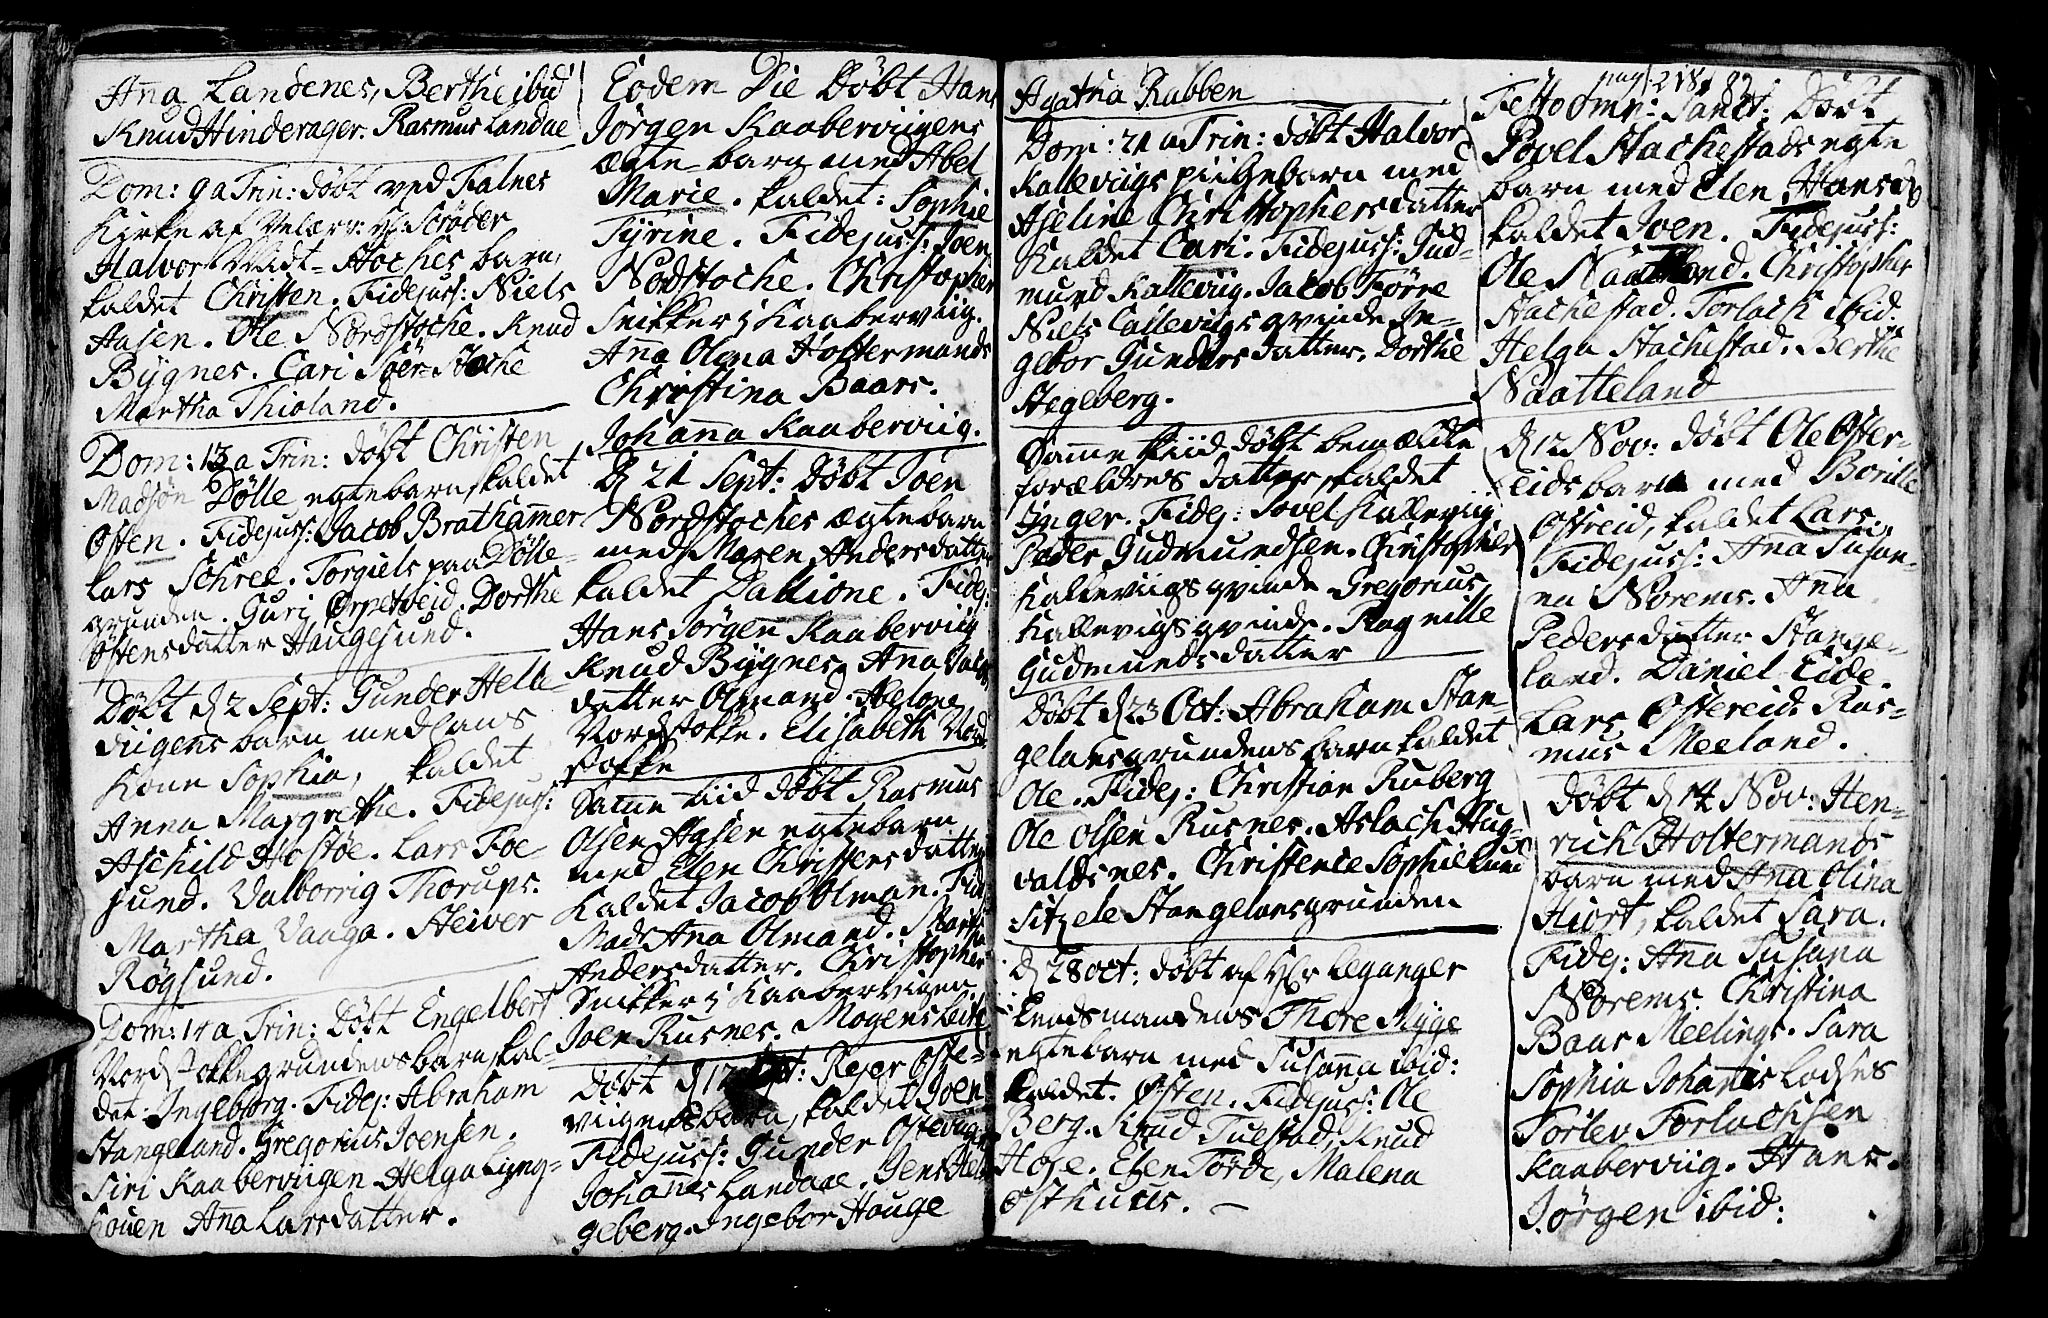 Aña Landenes, Berthe ibid
Knud Hinderager. Rasmus Landae
Dom: 9 a Trin: döbt ved Falnes
Kirke af Velærv: Hr: Scröder
Halvor Midt-Stoches barn,
kaldet Christen. Fidejuss: Niels
Aasen. Ole Nordstoche. Knud
Bÿgnes. Cari Söer-Stoche
Martha Thioland.
Dom: 13 a Trin: döbt Christen
Madsön Dölle egtebarn, kaldet
Östen. Fidejuss: Jacob Brathamer
Lars Schree. Torgiels paa Dölle-
grunden. Guri Örpetveid. Dorthe
Östensdatter Haugesund.
Döbt d 2 Sept: Gunder Helle-
viigens barn med hans
Kone Sophia, kaldet
Anna Margrethe. Fidejuss:
Aschild Hostöe. Lars Foe-
sund. Valborrig Thorups.
Martha Vaaga. Steiver
Rögsund.
Dom: 14 a Trin: Döbt Engelbert
Nordstokkegrundens barn, kal-
det Ingeborg. Fidej: Abraham
Stangeland. Gregorius Joensen.
Siri Kaaberviigen Helga Lyng-
houen Aña Larsdatter.
Eodem Die Döbt Hans
Jörgen Kaaberviigens
ægte-barn med Abel
Marie. kaldet: Sophie
Tyrine. Fidejuss: Joen
Nordstoche. Christopher
Snikker i Kaaberviig.
Aña Olma Holtermands
Christina Baars.
Johaña Kaaberviig.
d 21 Sept: Döbt Joen
Nordstoches ægtebarn
med Maren Andersdatter
kaldet Dallione. Fidej:
Hans Jörgen Kaaberviig
Knud Bÿgnes. Aña
datter Olmand. Abelone
Nordstokke. Elisabeth Nord-
stokke
Same tiid döbt Rasmus
Olsen Aasen egtebarn
med Elen Christensdatter
kaldet Jacob Olman. Fid:
Mads Aña Olmand. Martha
Andersdatter. Christopher
Snikker i Kaaberviigen
Joen Rusnes. Mogens
Döbt d 12 Sept: Rejer Oste-
viigens barn, kaldet Joen
Fidejuss: Gunder Osteviig
Johañes Landaae. Jens Ste-
geberg. Ingebor Hauge
Agatha Rabben
Dom: 21 a Trin: döbt Halvor
Kalleviigs piigebarn med
Aseline Christophersdatter
kaldet Cari. Fidejuss: Gud-
mund Kalleviig. Jacob Förre
Niels Calleviigs qvinde In-
gebor Gundersdatter, Dorthe
Stegeberg.
Same tiid döbt bemældte
forældres datter, kaldet
Inger. Fidej: Povel Kalleviig
Peder Gudmundsen. Christopher
Kalleviigs qvinde Gregorius
Kallevigs qvinde. Ragnille
Gudmundsdatter
Döbt d 23 Oct: Abraham Stan-
gelandsgrundens barn kaldet
Ole. Fidej: Christian Ruberg
Ole Olsen Rusnes. Aslach Aug-
valdsnes. Christence Sophie Lund
Sitzele Stangelandsgrunden
d 28 oct: döbt af Hr Leganger
Lendsmandens Thore Mÿge
egtebarn med Susaña ibid:
kaldet. Östen. Fidejuss: Ole
Berg. Knud Tuestad, Knud
Hose. Elen Törde, Malena
Osthuus.
pag: 218
Festo omn: Sanct: Döbt
Povel Stachestads egte
barn med Elen Hansd
kaldet Joen. Fidejuss:
Ole Naatland. Christopher
Stachestad. Torlach ibid.
Helga Stachestad. Berthe
Naatteland
d 12 Nov: döbt Ole Öster-
eids barn med Borille
Östreid, kaldet Lars.
Fidejuss: Aña Susan-
na Norems. Aña
Pedersdatter Stange-
land. Daniel Eide.
Lars Östereid. Ras-
mus Meeland.
Döbt d 14 Nov: Hen-
rich Holtermands
barn med Aña Olina
Hiort, kaldet Sara.
Fidej: Aña Susana
Norems. Christina
Baas Meelings. Sara
Sophia Johañis Lodses
Torlev Torlachsen
Kaaberviig. Hans
Jörgen ibid: